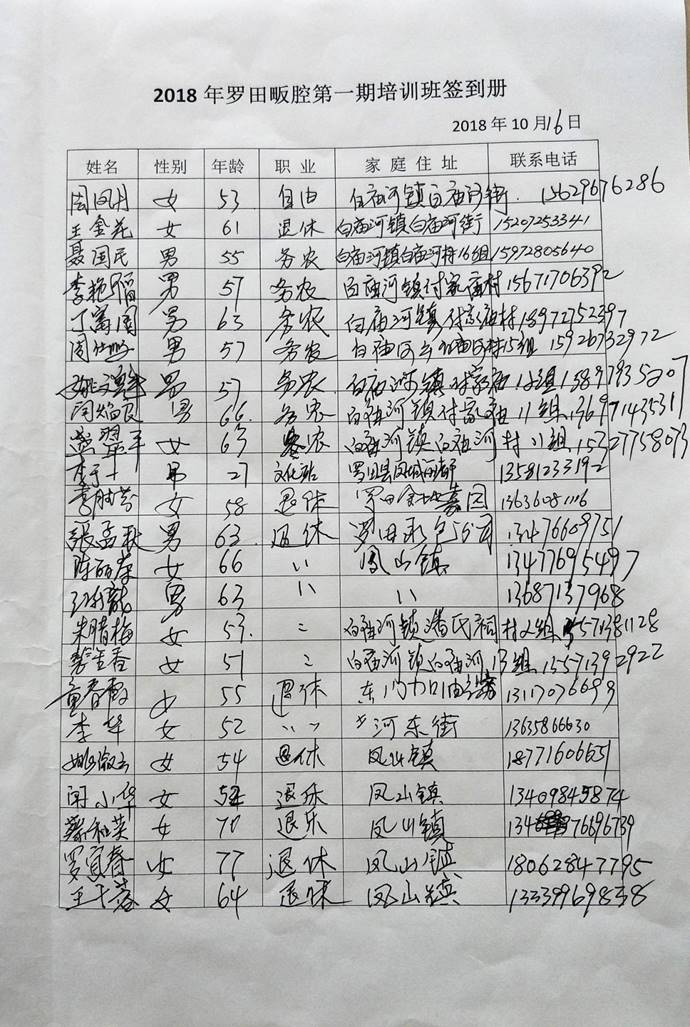 2018年罗田畈腔第一期培训班签到册
2018年10月16日
姓名 性别 年龄 职业 家庭住址 联系电话
周冈月 女 53 自由 白庙河镇白庙河街 15629676286
王金花 女 61 退休 白庙河镇白庙河街 15207253341
聂国民 男 55 务农 白庙河镇白庙河村16组 15972805640
李艳 男 57 务农 白庙河镇付家庙村 15671706392
丁 国 男 63 务农 白庙河镇付家庙村 18972752397
周 男 57 务农 白庙河 15组 15926732972
男 57 务农 白庙河镇付家庙 组 15897935207
男 66 务农 白庙河镇付家庙11组 13697143531
翠平 女 63 务农 白庙河镇白庙河村11组 15327758073
李 男 27 文化站 罗田县凤城 13581233192
李 芬 女 58 退休 罗田 嘉园 13636081116
张孟秋 男 63 退休 罗田 公司 13476609751
陈丽 女 66 〃 凤山镇 13477695497
男 63 〃 〃 13687137968
朱腊梅 女 53 〃 白庙河镇潘氏祠村2组 15571381128
春 女 51 〃 白庙河镇白庙河13组 15571392922
童春霞 女 55 退休 东门 13117076699
李华 女 52 〃 〃河东街 13635866630
姚 女 54 退休 凤山镇 18771606651
闵小华 女 退休 凤山镇 13409845874
蔡和英 女 70 退休 凤山镇 134 76696739
罗宜春 女 77 退休 凤山镇 18062847795
王 蓉 女 64 退休 凤山镇 13339969838